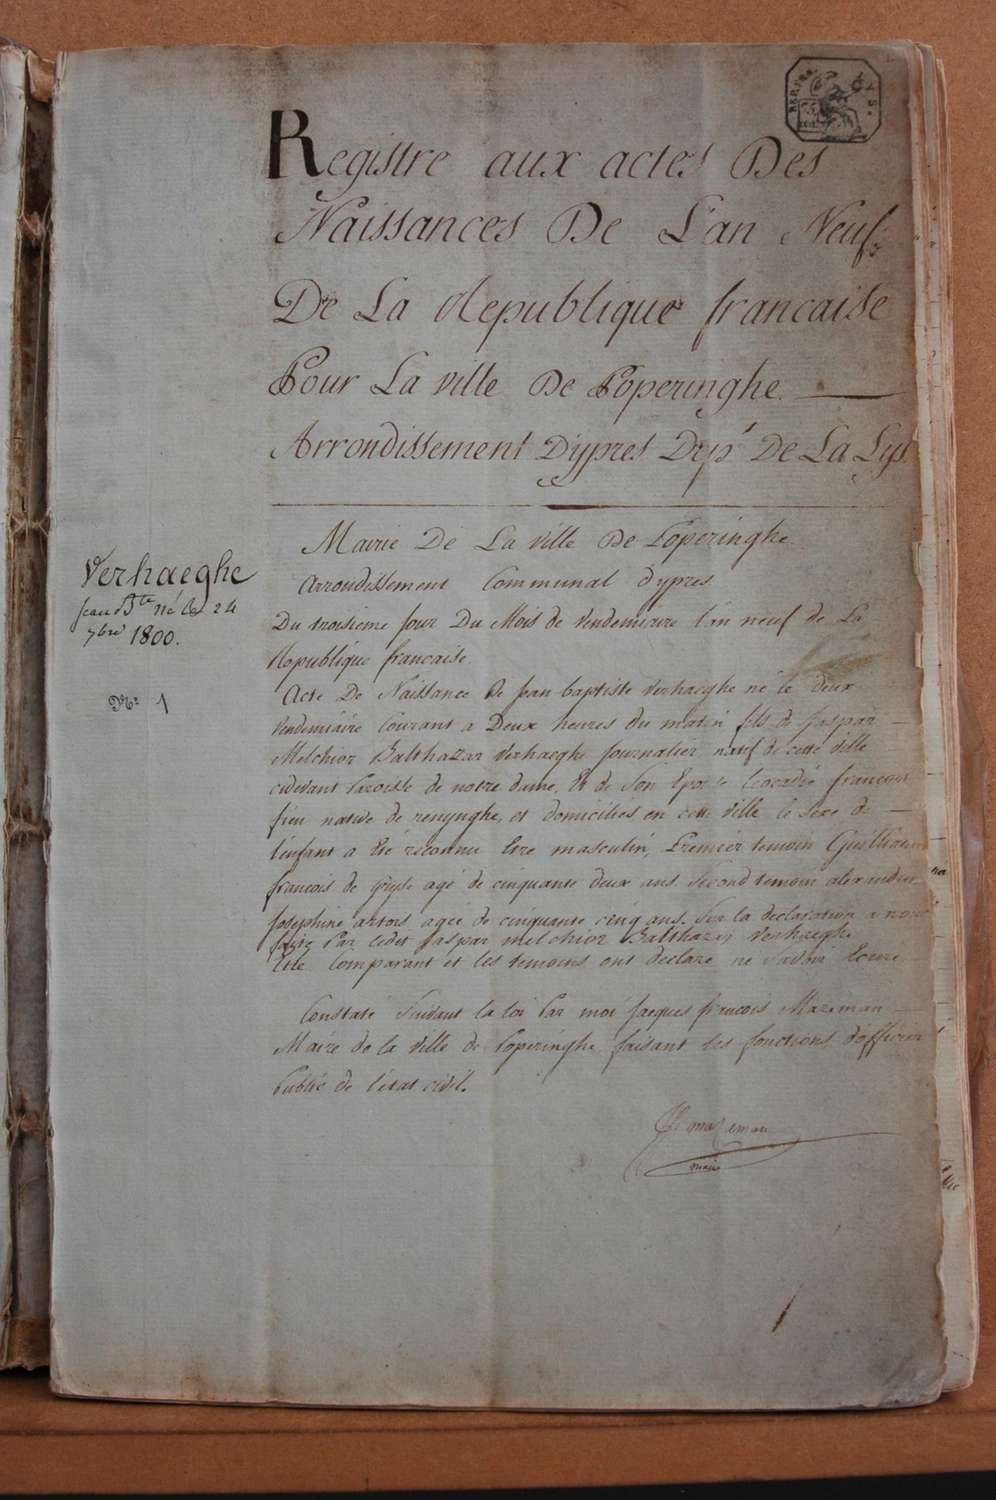 Registre aux actes Des
Naissances De L'an Neuf
De La Republique francaise
Pour La ville De Poperinghe
Arrondissement D'ypres Dep^t De La Lys
Mairie De La ville De Poperinghe
Arrondissement Communal d'ypres
Verhaeghe
jean B^te né le 24
7bre 1800.
N° 1
Du troisieme jour Du Mois de vendemiaire l'an neuf de La
Republique francaise
Acte De Naissance de jean baptiste verhaeghe né le deux
vendemiaire Courant a Deux heures du matin fils de jaspar
Melchior Balthazar verhaeghe journalier natif de cette ville
cidevant Paroisse de notre dame, Et de Son Epouse leocadie francoise
fieu native de renynghe, et domiciliés en cette ville le sexe de
l'enfant a été reconnu Etre masculin, Premier temoin Guilliaume
francois de gryse agé de cinquante deux ans Second temoin alexandrine
josephine artois agee de cinquante cinq ans. Sur la declaration a nous
faite Par ledit jaspar melchior Balthazar verhaeghe
Le Comparant et les temoins ont declaré ne Savoir Ecrire
Constaté Suivant la loi Par moi jacques francois Mazeman
Maire de la ville de Poperinghe faisant les fonctions d'officier
Public de l'état civil.
mazeman
maire